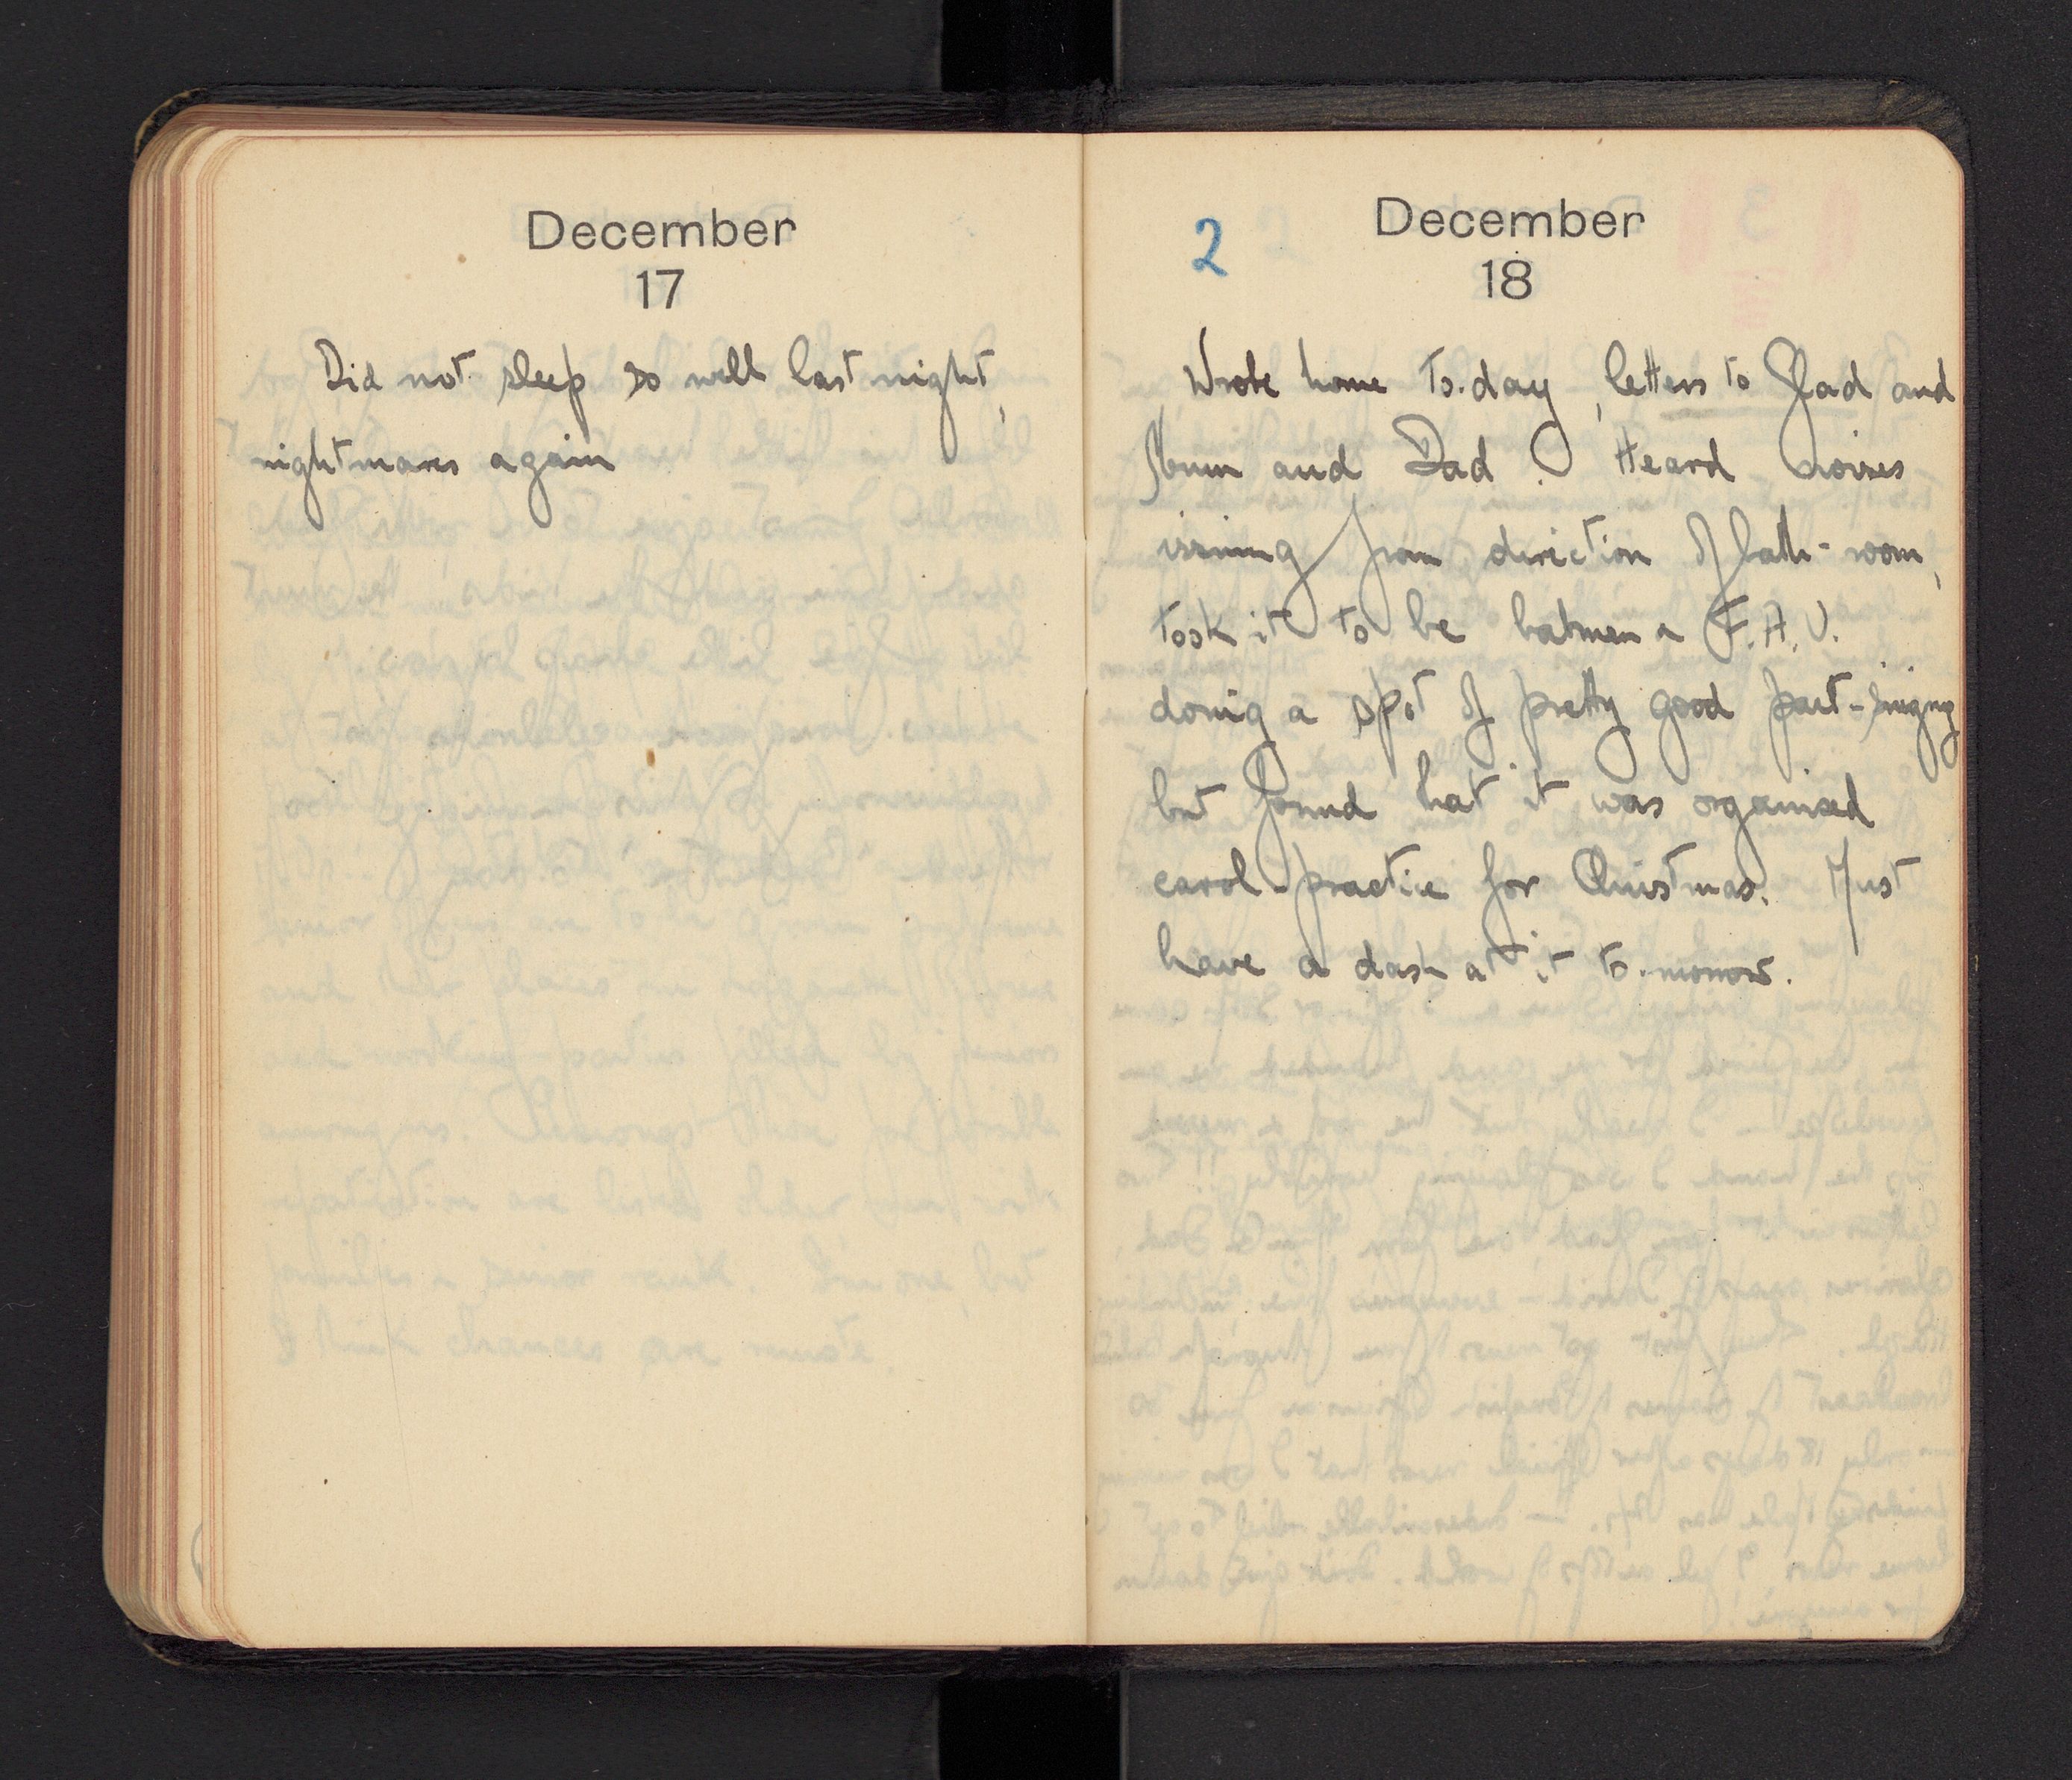 December
17
Did not sleep so well last night,
nightmares again
2
December
18
Wrote home to.day, letters to Glad and
Mum and Dad. Heard noises
issuing from direction of bath-room,
took it to be batmen a F.A.U.
doing a spot of pretty good part-singing
but found that it was organised
carol-practice for Christmas. Must
have a dash at it to-morrow.